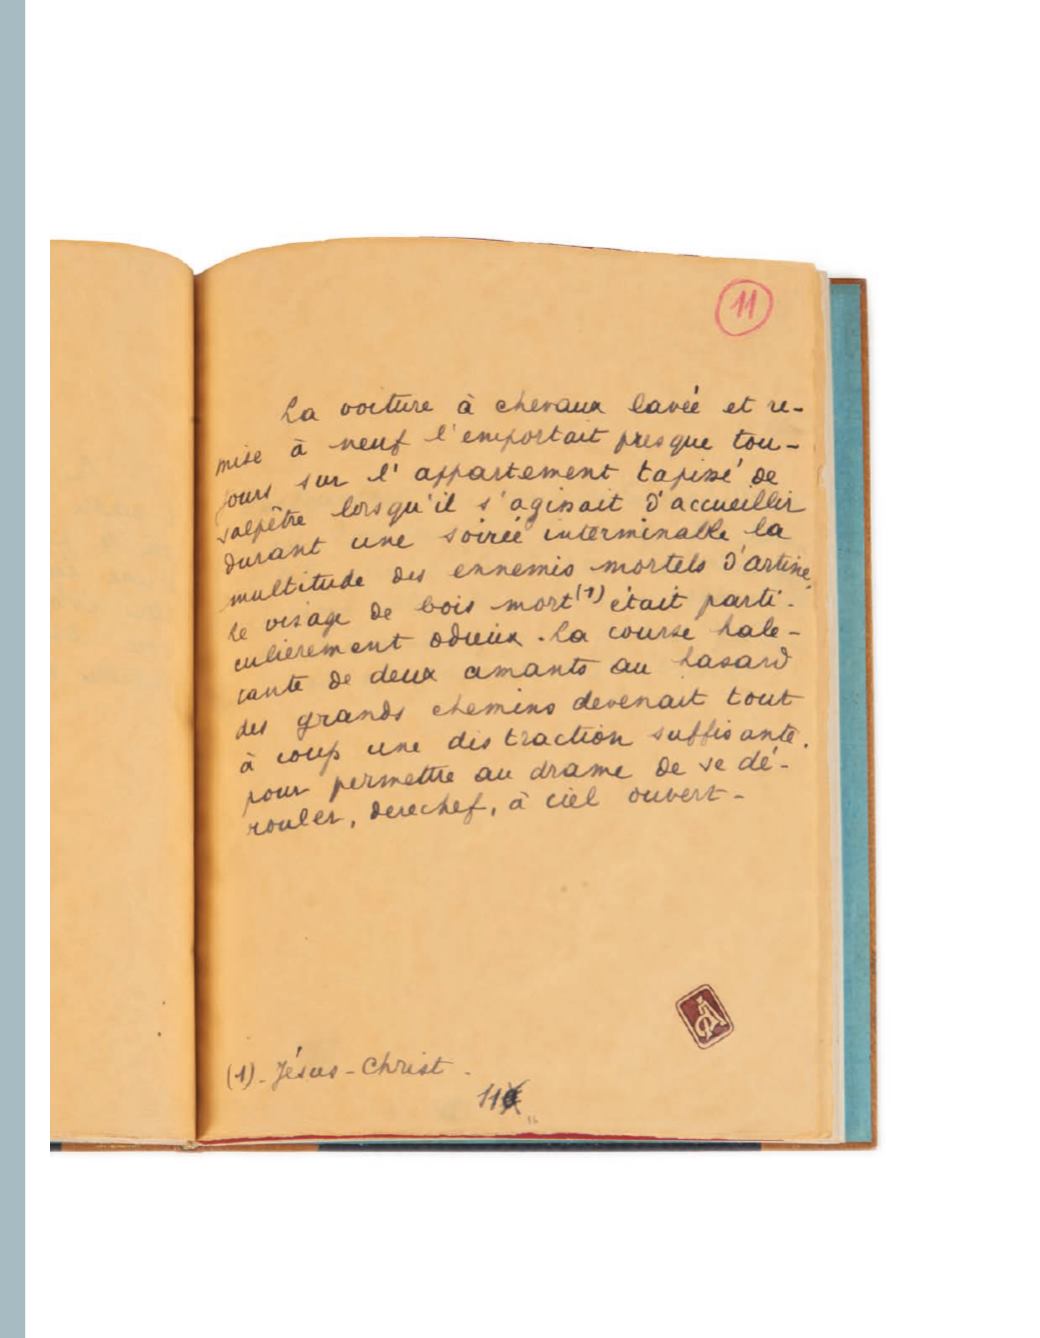 11
La voiture à chevaux lavée et re-
mise à neuf l'emportait presque tou-
jours sur l'appartement tapissé de
salpêtre lorsqu'il s'agissait d'accueillir
durant une soirée interminable la
multitude des ennemis mortels d'artine.
Le visage de bois mort(1) était parti-
culièrement odieux. La course hale-
tante de deux amants au hasard
des grands chemins devenait tout
à coup une distraction suffisante.
pour permettre au drame de se dé-
rouler, derechef, à ciel ouvert-
(1)- Jésus-Christ-
11